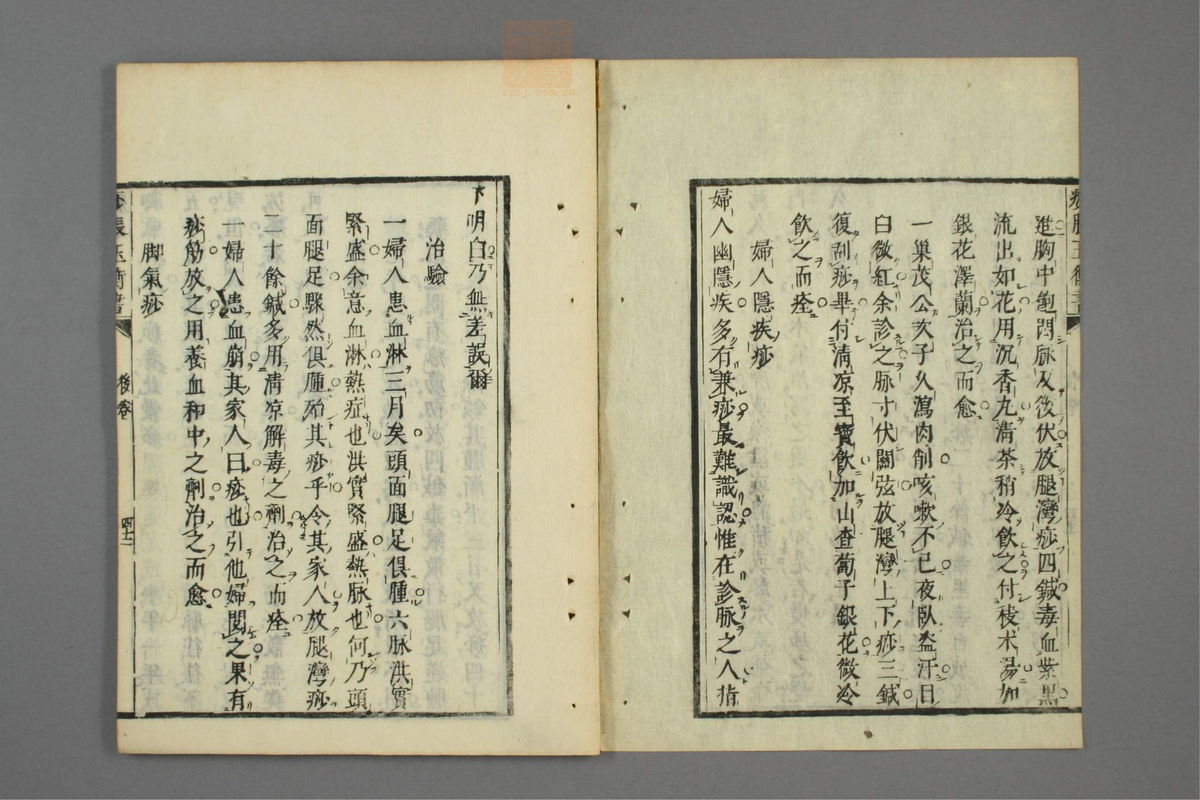 進胸中飽悶脉又洪伏放腿灣痧四鍼毒血紫黑
流出如花用沉香丸清茶稍冷飲之付枝朮湯加
銀花澤蘭治之而愈
一巢茂公次子久瀉肉削咳嗽不已夜臥盜汗日
白微紅余診之脉寸伏關弦放腿灣上下痧三鍼
復刮痧畢付清凉至寶飲加山查蔔子銀花微冷
飲之而痊
婦人隱疾痧
婦人幽隱疾多有兼痧最難識認惟在診脉之人指
下明白乃無差誤爾
治驗
一婦人患血淋三月矣頭面腿足俱腫六脉洪實
緊盛余意血淋熱症也洪實緊盛熱脉也何乃頭
面腿足驟然俱腫殆其痧乎令其家人放腿灣痧
二十餘鍼多用清凉解毒之劑治之而痊
一婦人患血崩其家人曰痧也引他婦閱之果有
痧筋放之用養血和中之劑治之而愈
脚氣痧
痧脹玉衡書
後卷
四十二
zysj.com.cn